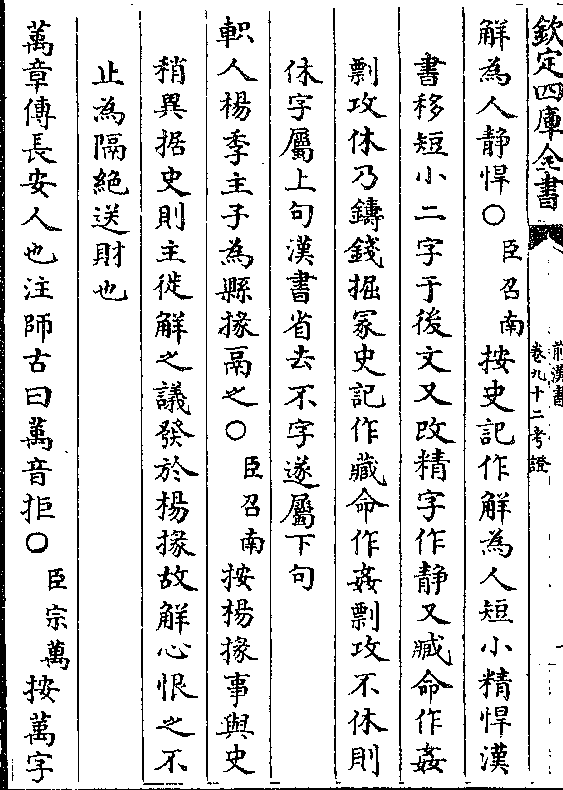 欽定四庫全書
前漢書
卷九十二考證
解為人静悍〇臣召南按史記作解為人短小精悍漢
書移短小二字于後文又改精字作静又臧命作姦
剽攻休乃鑄錢掘冢史記作藏命作姦剽攻不休則
休字屬上句漢書省去不字遂屬下句
軹人楊季主子為縣掾鬲之〇臣召南按楊掾事與史
稍異据史則主徙解之議發於楊掾故解心恨之不
止為隔絶送財也
萬章傳長安人也注師古曰萬音拒〇臣宗萬按萬字